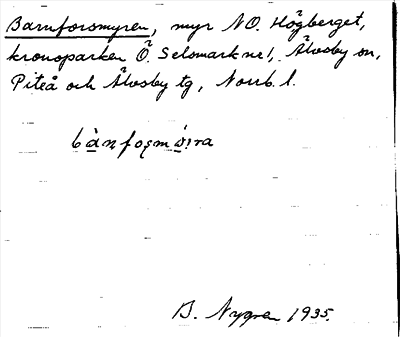 Barnforsmyren, myr NO. Högberget,
kronoparken Ö. Selsmark ne!, Älvsby sn,
Piteå och Älvsby tg, Norrb. l.
B. Nygren 1935.